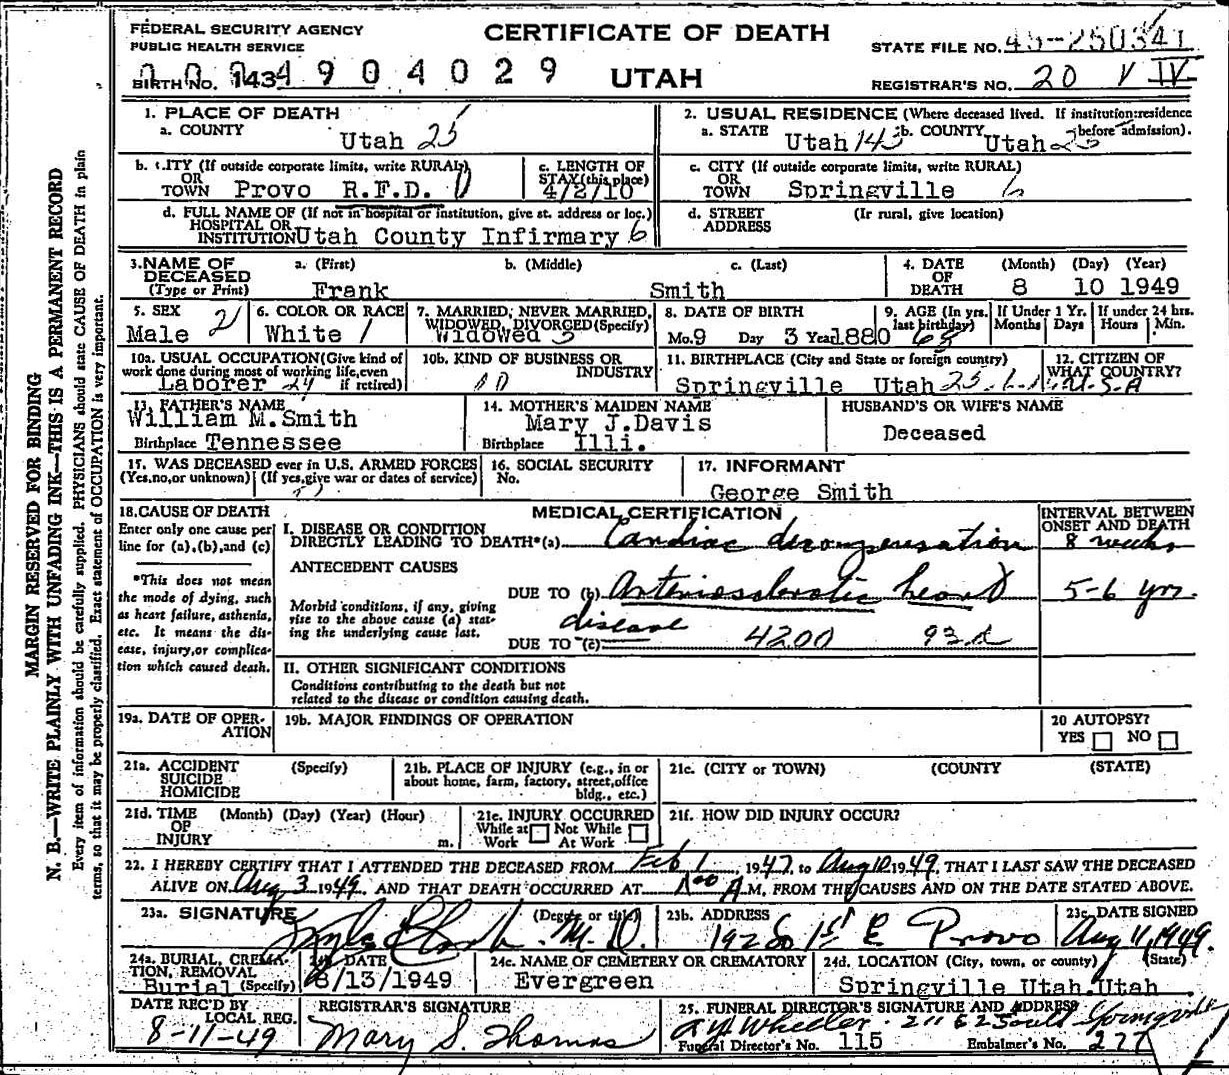 FEDERAL SECURITY AGENCY
PUBLIC HEALTH SERVICE
CERTIFICATE OF DEATH
STATE FILE NO. 45-250341
BIRTH NO. 1434904029
UTAH
REGISTRAR'S NO. 20 V IV
MARGIN RESERVED FOR BINDING
N. B.—WRITE PLAINLY WITH UNFADING INK—THIS IS A PERMANENT RECORD
Every item of information should be carefully supplied. PHYSICIANS should state CAUSE OF DEATH in plain
terms, so that it may be properly classified. Exact statement of OCCUPATION is very important.
1. PLACE OF DEATH
a. COUNTY
Utah 25
2. USUAL RESIDENCE (Where deceased lived. If institution:residence before admission).
a. STATE Utah 143 b. COUNTY Utah 25
b. CITY (If outside corporate limits, write RURAL)
OR
TOWN Provo R.F.D.
c. LENGTH OF
STAY (this place)
4/2/10
c. CITY (If outside corporate limits, write RURAL)
OR
TOWN Springville 6
d. FULL NAME OF (If not in hospital or institution, give st. address or loc.)
HOSPITAL OR
INSTITUTION Utah County Infirmary 6
d. STREET (Ir rural, give location)
ADDRESS
3. NAME OF
DECEASED
(Type or Print)
a. (First) b. (Middle) c. (Last)
Frank Smith
4. DATE
OF
DEATH
(Month) (Day) (Year)
8 10 1949
5. SEX
Male 21
6. COLOR OR RACE
White 1
7. MARRIED, NEVER MARRIED,
WIDOWED, DIVORCED (Specify)
Widowed 3
8. DATE OF BIRTH
Mo. 9 Day 3 Year 1880
9. AGE (In yrs.
last birthday)
68
If Under 1 Yr.
Months Days
If under 24 hrs.
Hours Min.
10a. USUAL OCCUPATION (Give kind of
work done during most of working life, even
if retired)
Laborer 24
10b. KIND OF BUSINESS OR
INDUSTRY
11. BIRTHPLACE (City and State or foreign country)
Springville Utah
12. CITIZEN OF
WHAT COUNTRY?
U.S.A
13. FATHER'S NAME
William M.Smith
Birthplace Tennessee
14. MOTHER'S MAIDEN NAME
Mary J.Davis
Birthplace Illi.
HUSBAND'S OR WIFE'S NAME
Deceased
15. WAS DECEASED ever in U.S. ARMED FORCES
(Yes,no,or unknown) (If yes,give war or dates of service)
16. SOCIAL SECURITY
No.
17. INFORMANT
George Smith
18. CAUSE OF DEATH
Enter only one cause per
line for (a),(b),and (c)
*This does not mean
the mode of dying, such
as heart failure, asthenia,
etc. It means the dis-
ease, injury,or complica-
tion which caused death.
MEDICAL CERTIFICATION
INTERVAL BETWEEN
ONSET AND DEATH
I. DISEASE OR CONDITION
DIRECTLY LEADING TO DEATH*(a) Cardiac decompensation 8 weeks
ANTECEDENT CAUSES
Morbid conditions, if any, giving
rise to the above cause (a) stat-
ing the underlying cause last.
DUE TO (b) Arteriosclerotic heart 5-6 yrs.
disease
DUE TO (c) 4200 93d
II. OTHER SIGNIFICANT CONDITIONS
Conditions contributing to the death but not
related to the disease or condition causing death.
19a. DATE OF OPER-
ATION
19b. MAJOR FINDINGS OF OPERATION
20 AUTOPSY?
YES NO
21a. ACCIDENT
SUICIDE
HOMICIDE
(Specify)
21b. PLACE OF INJURY (e.g., in or
about home, farm, factory, street,office
bldg., etc.)
21c. (CITY or TOWN) (COUNTY) (STATE)
21d. TIME
OF
INJURY
(Month) (Day) (Year) (Hour)
m.
21e. INJURY OCCURRED
While at Work Not While At Work
21f. HOW DID INJURY OCCUR?
22. I HEREBY CERTIFY THAT I ATTENDED THE DECEASED FROM Feb 1 1947, to Aug 10 1949, THAT I LAST SAW THE DECEASED
ALIVE ON Aug 3 1949, AND THAT DEATH OCCURRED AT 1:00 A M, FROM THE CAUSES AND ON THE DATE STATED ABOVE.
23a. SIGNATURE (Degree or title)
M.D.
23b. ADDRESS
192 So 1st E Provo
23c. DATE SIGNED
Aug 11, 1949.
24a. BURIAL, CREMA-
TION, REMOVAL
(Specify)
Burial
24b. DATE
8/13/1949
24c. NAME OF CEMETERY OR CREMATORY
Evergreen
24d. LOCATION (City, town, or county) (State)
Springville Utah.Utah
DATE REC'D BY
LOCAL REG.
8-11-49
REGISTRAR'S SIGNATURE
Mary S. Thomas
25. FUNERAL DIRECTOR'S SIGNATURE AND ADDRESS
A.Y. Wheeler. 211 E 2 South Springville
Funeral Director's No. 115 Embalmer's No. 277